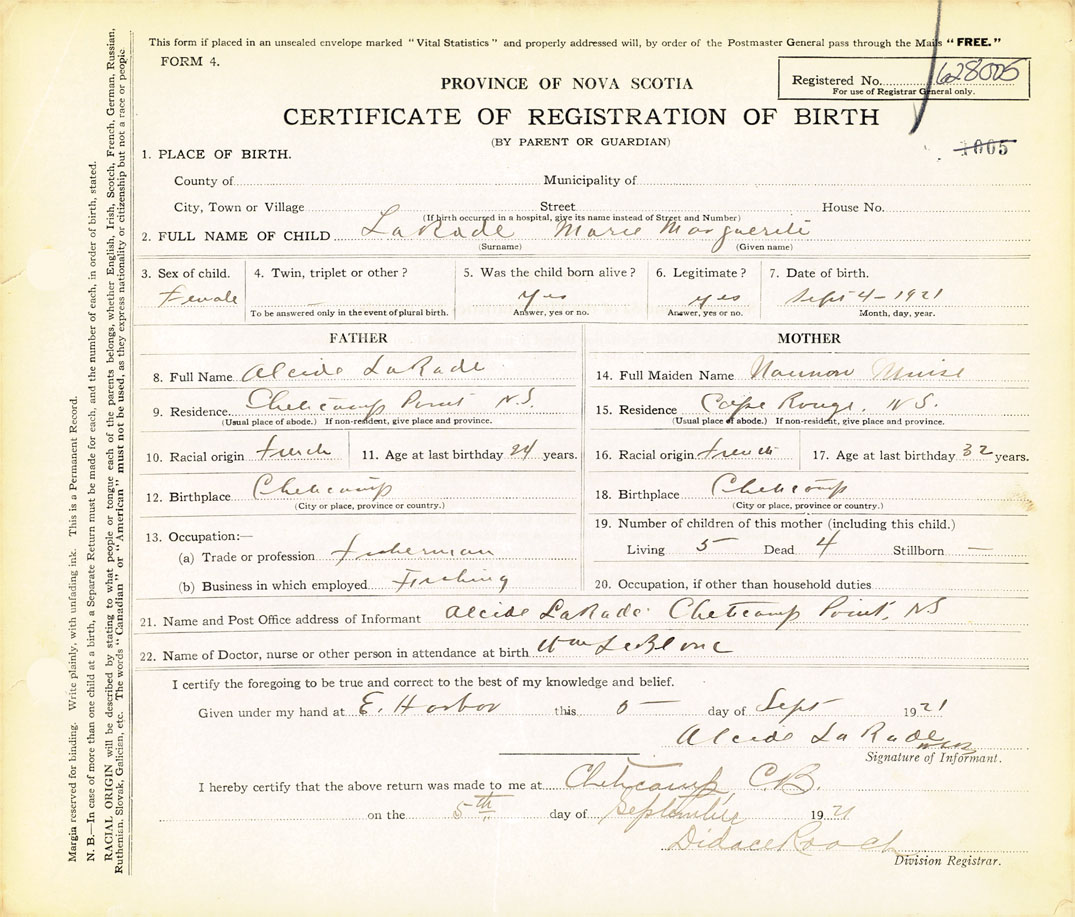 This form if placed in an unsealed envelope marked "Vital Statistics" and properly addressed will, by order of the Postmaster General pass through the Mails "FREE."
FORM 4.
PROVINCE OF NOVA SCOTIA
Registered No. 628005
For use of Registrar General only.
CERTIFICATE OF REGISTRATION OF BIRTH
(BY PARENT OR GUARDIAN)
1005
1. PLACE OF BIRTH.
County of Municipality of
City, Town or Village Street House No.
(If birth occurred in a hospital, give its name instead of Street and Number)
2. FULL NAME OF CHILD LaRade Marie Marguerite
(Surname) (Given name)
3. Sex of child. 4. Twin, triplet or other? 5. Was the child born alive? 6. Legitimate? 7. Date of birth.
Female yes yes Sept 4-1921
To be answered only in the event of plural birth. Answer, yes or no. Answer, yes or no. Month, day, year.
FATHER MOTHER
8. Full Name Alcide LaRade 14. Full Maiden Name Muise
9. Residence Cheticamp Point N.S. 15. Residence Cape Rouge, N.S.
(Usual place of abode.) If non-resident, give place and province. (Usual place of abode.) If non-resident, give place and province.
10. Racial origin french 11. Age at last birthday years. 16. Racial origin french 17. Age at last birthday 32 years.
12. Birthplace Cheticamp 18. Birthplace Cheticamp
(City or place, province or country.) (City or place, province or country.)
13. Occupation:— 19. Number of children of this mother (including this child.)
(a) Trade or profession fisherman Living 5 Dead 4 Stillborn —
(b) Business in which employed Fishing 20. Occupation, if other than household duties
21. Name and Post Office address of Informant Alcide LaRade Cheticamp Point, NS
22. Name of Doctor, nurse or other person in attendance at birth Wm LeBlanc
I certify the foregoing to be true and correct to the best of my knowledge and belief.
Given under my hand at E. Harbor this 5 day of Sept 1921
Alcide LaRade
Signature of Informant.
I hereby certify that the above return was made to me at Cheticamp C.B.
on the 5th day of September 1921
Didace Roach
Division Registrar.
Margin reserved for binding. Write plainly, with unfading ink. This is a Permanent Record.
N. B.—In case of more than one child at a birth, a Separate Return must be made for each, and the number of each, in order of birth, stated.
RACIAL ORIGIN will be described by stating to what people or tongue each of the parents belongs, whether English, Irish, Scotch, French, German, Russian,
Ruthenian, Slovak, Galician, etc. The words "Canadian" or "American" must not be used, as they express nationality or citizenship but not a race or people.